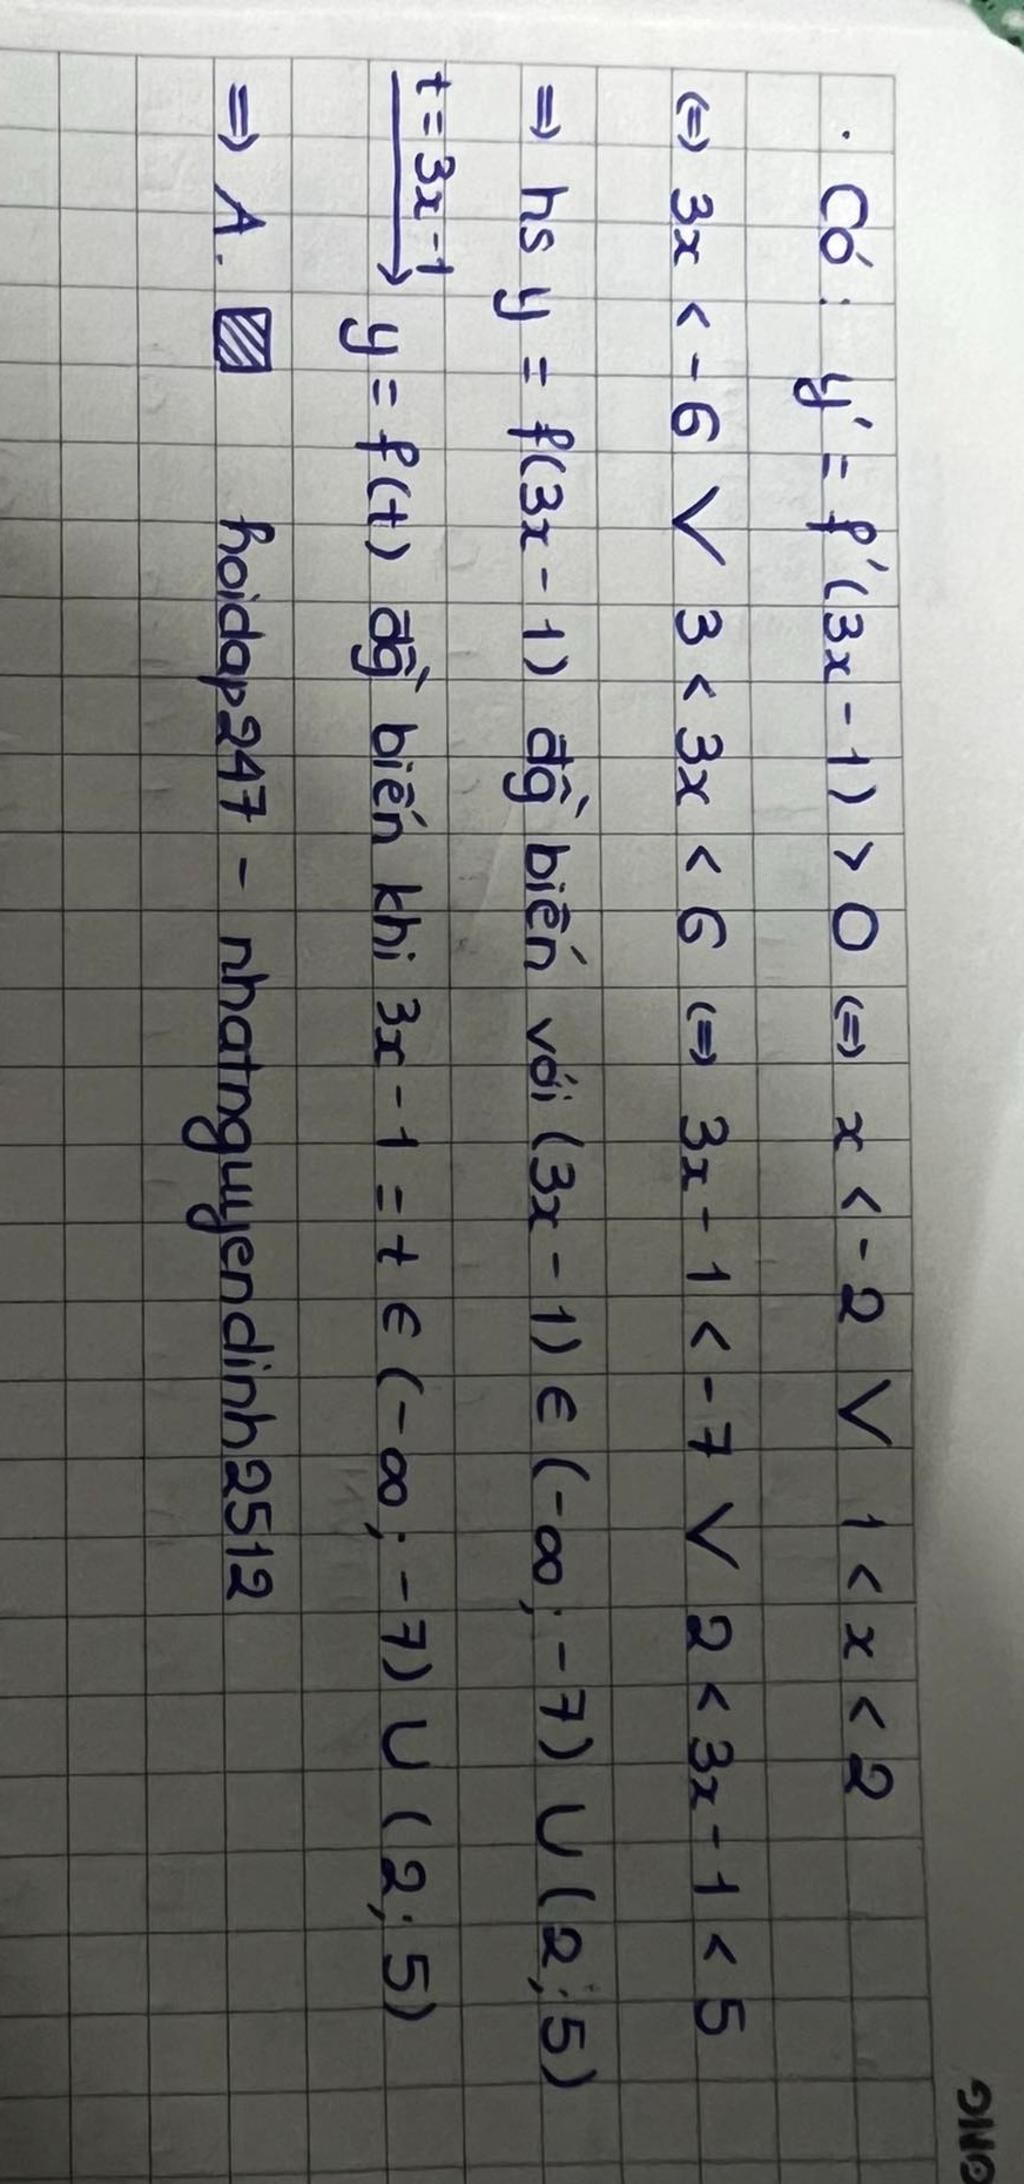 . Có : y' = f'(3x - 1) > 0 <=> x < -2 V 1 < x < 2
<=> 3x < -6 V 3 < 3x < 6 <=> 3x - 1 < -7 V 2 < 3x - 1 < 5
=> hs y = f(3x - 1) đg̀̂ biến với (3x - 1) ∈ (-∞; -7) U (2; 5)
t = 3x - 1 → y = f(t) đg̀̂ biến khi 3x - 1 = t ∈ (-∞; -7) U (2; 5)
=> A.
hoidap247 - nhatnguyendinh2512